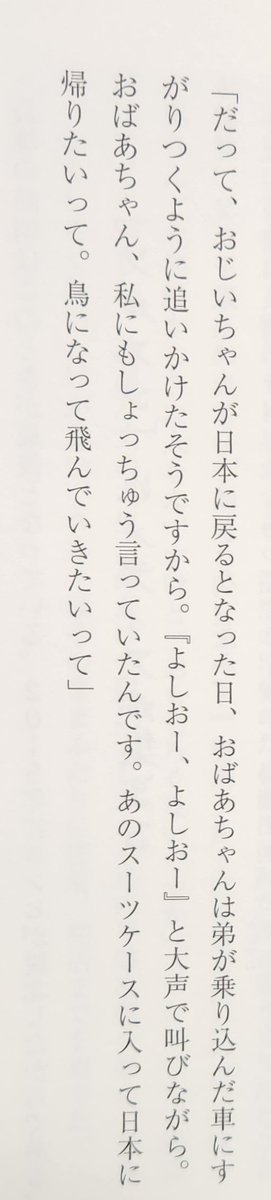 「だって、おじいちゃんが日本に戻るとなった日、おばあちゃんは弟が乗り込んだ車にす
がりつくように追いかけたそうですから。『よしおー、よしおー』と大声で叫びながら。
おばあちゃん、私にもしょっちゅう言っていたんです。あのスーツケースに入って日本に
帰りたいって。鳥になって飛んでいきたいって」